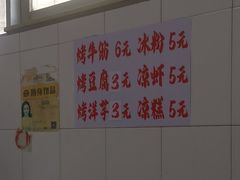 烤牛筋 6元 冰粉 5元
烤豆腐 3元 凉虾 5元
烤洋芋 3元 凉糕 5元